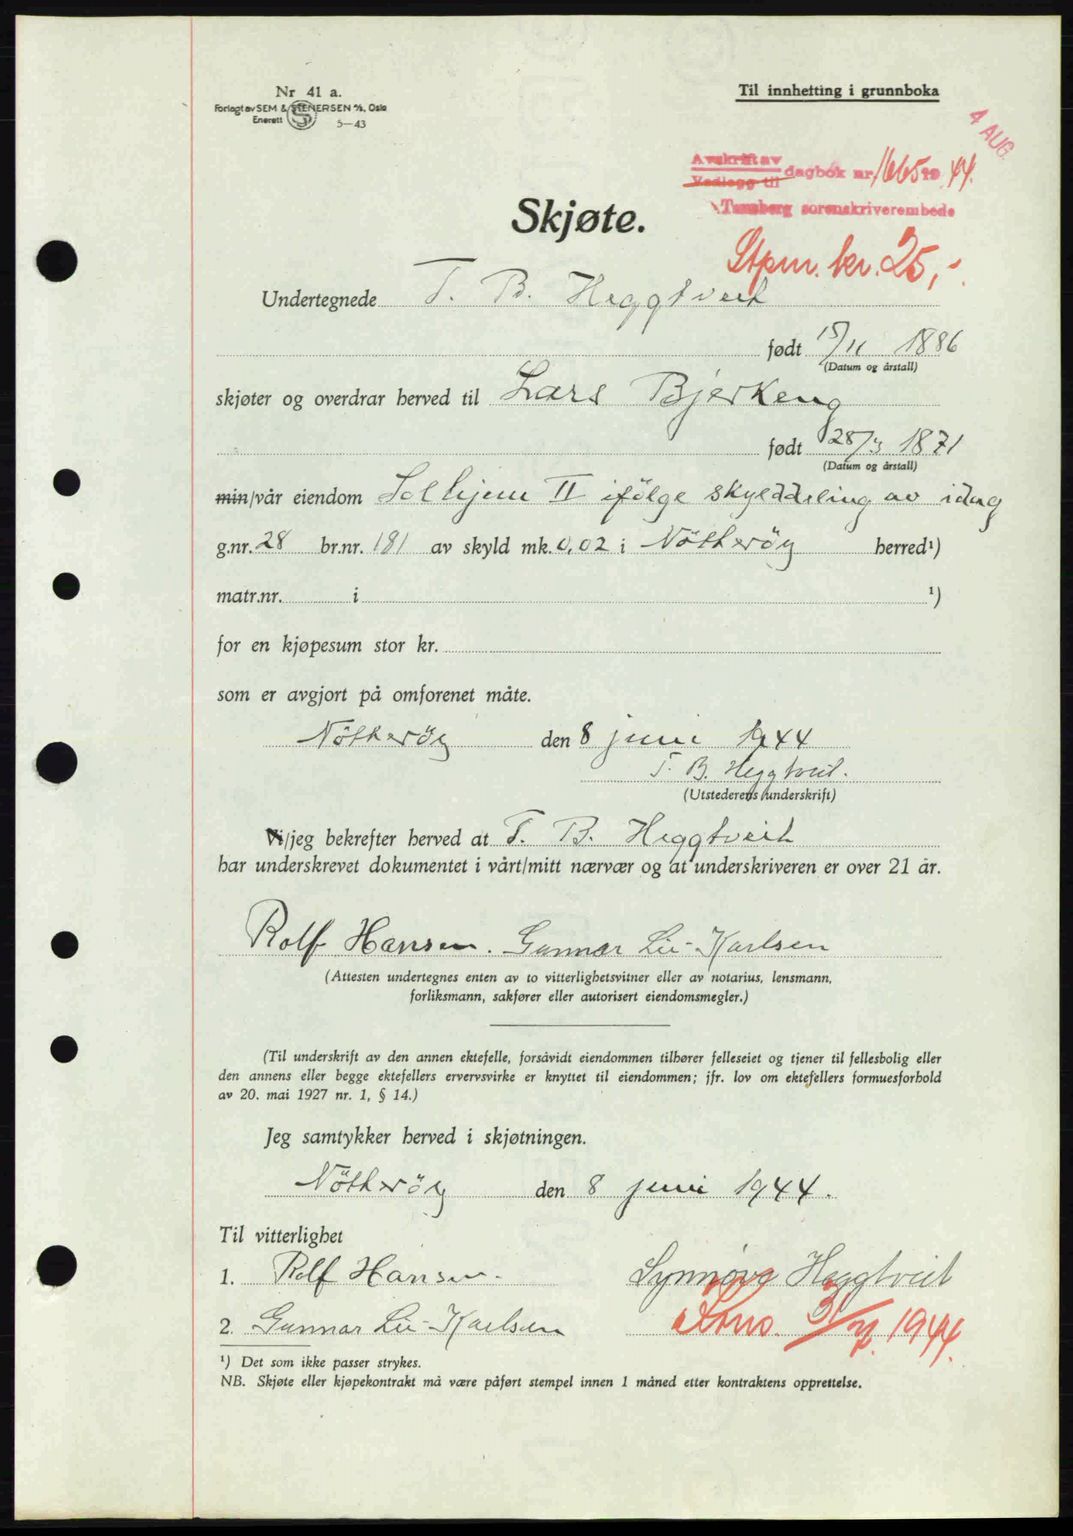 Nr 41 a.
Forlagt av SEM & STENERSEN A/S, Oslo
Enerett 5—43
Til innhetting i grunnboka
4 AUG.
Avskrift av
Vedlegg til dagbok nr 1665 19 44.
Tønsberg sorenskriverembede
Skjøte.
Stpm. kr. 25,-
Undertegnede T. B. Heggtveit
født 15/11 1886
(Datum og årstall)
skjøter og overdrar herved til Lars Bjerkeng
født 28/3 1871
(Datum og årstall)
min/vår eiendom Solhjem II ifölge skylddeling av idag
g.nr. 28 br.nr. 181 av skyld mk. 0,02 i Nötteröy herred¹)
matr.nr. i ¹)
for en kjøpesum stor kr.
som er avgjort på omforenet måte.
Nötteröy den 8 juni 1944
T. B. Heggtveit.
(Utstederens underskrift)
Vi/jeg bekrefter herved at T. B. Heggtveit
har underskrevet dokumentet i vårt/mitt nærvær og at underskriveren er over 21 år.
Rolf Hansen. Gunnar Lie-Karlsen
(Attesten undertegnes enten av to vitterlighetsvitner eller av notarius, lensmann,
forliksmann, sakfører eller autorisert eiendomsmegler.)
(Til underskrift av den annen ektefelle, forsåvidt eiendommen tilhører felleseiet og tjener til fellesbolig eller
den annens eller begge ektefellers ervervsvirke er knyttet til eiendommen; jfr. lov om ektefellers formuesforhold
av 20. mai 1927 nr. 1, § 14.)
Jeg samtykker herved i skjøtningen.
Nötteröy den 8 juni 1944.
Til vitterlighet
1. Rolf Hansen. Synnöve Heggtveit
2. Gunnar Lie-Karlsen 31/7. 1944.
¹) Det som ikke passer strykes.
NB. Skjøte eller kjøpekontrakt må være påført stempel innen 1 måned etter kontraktens opprettelse.